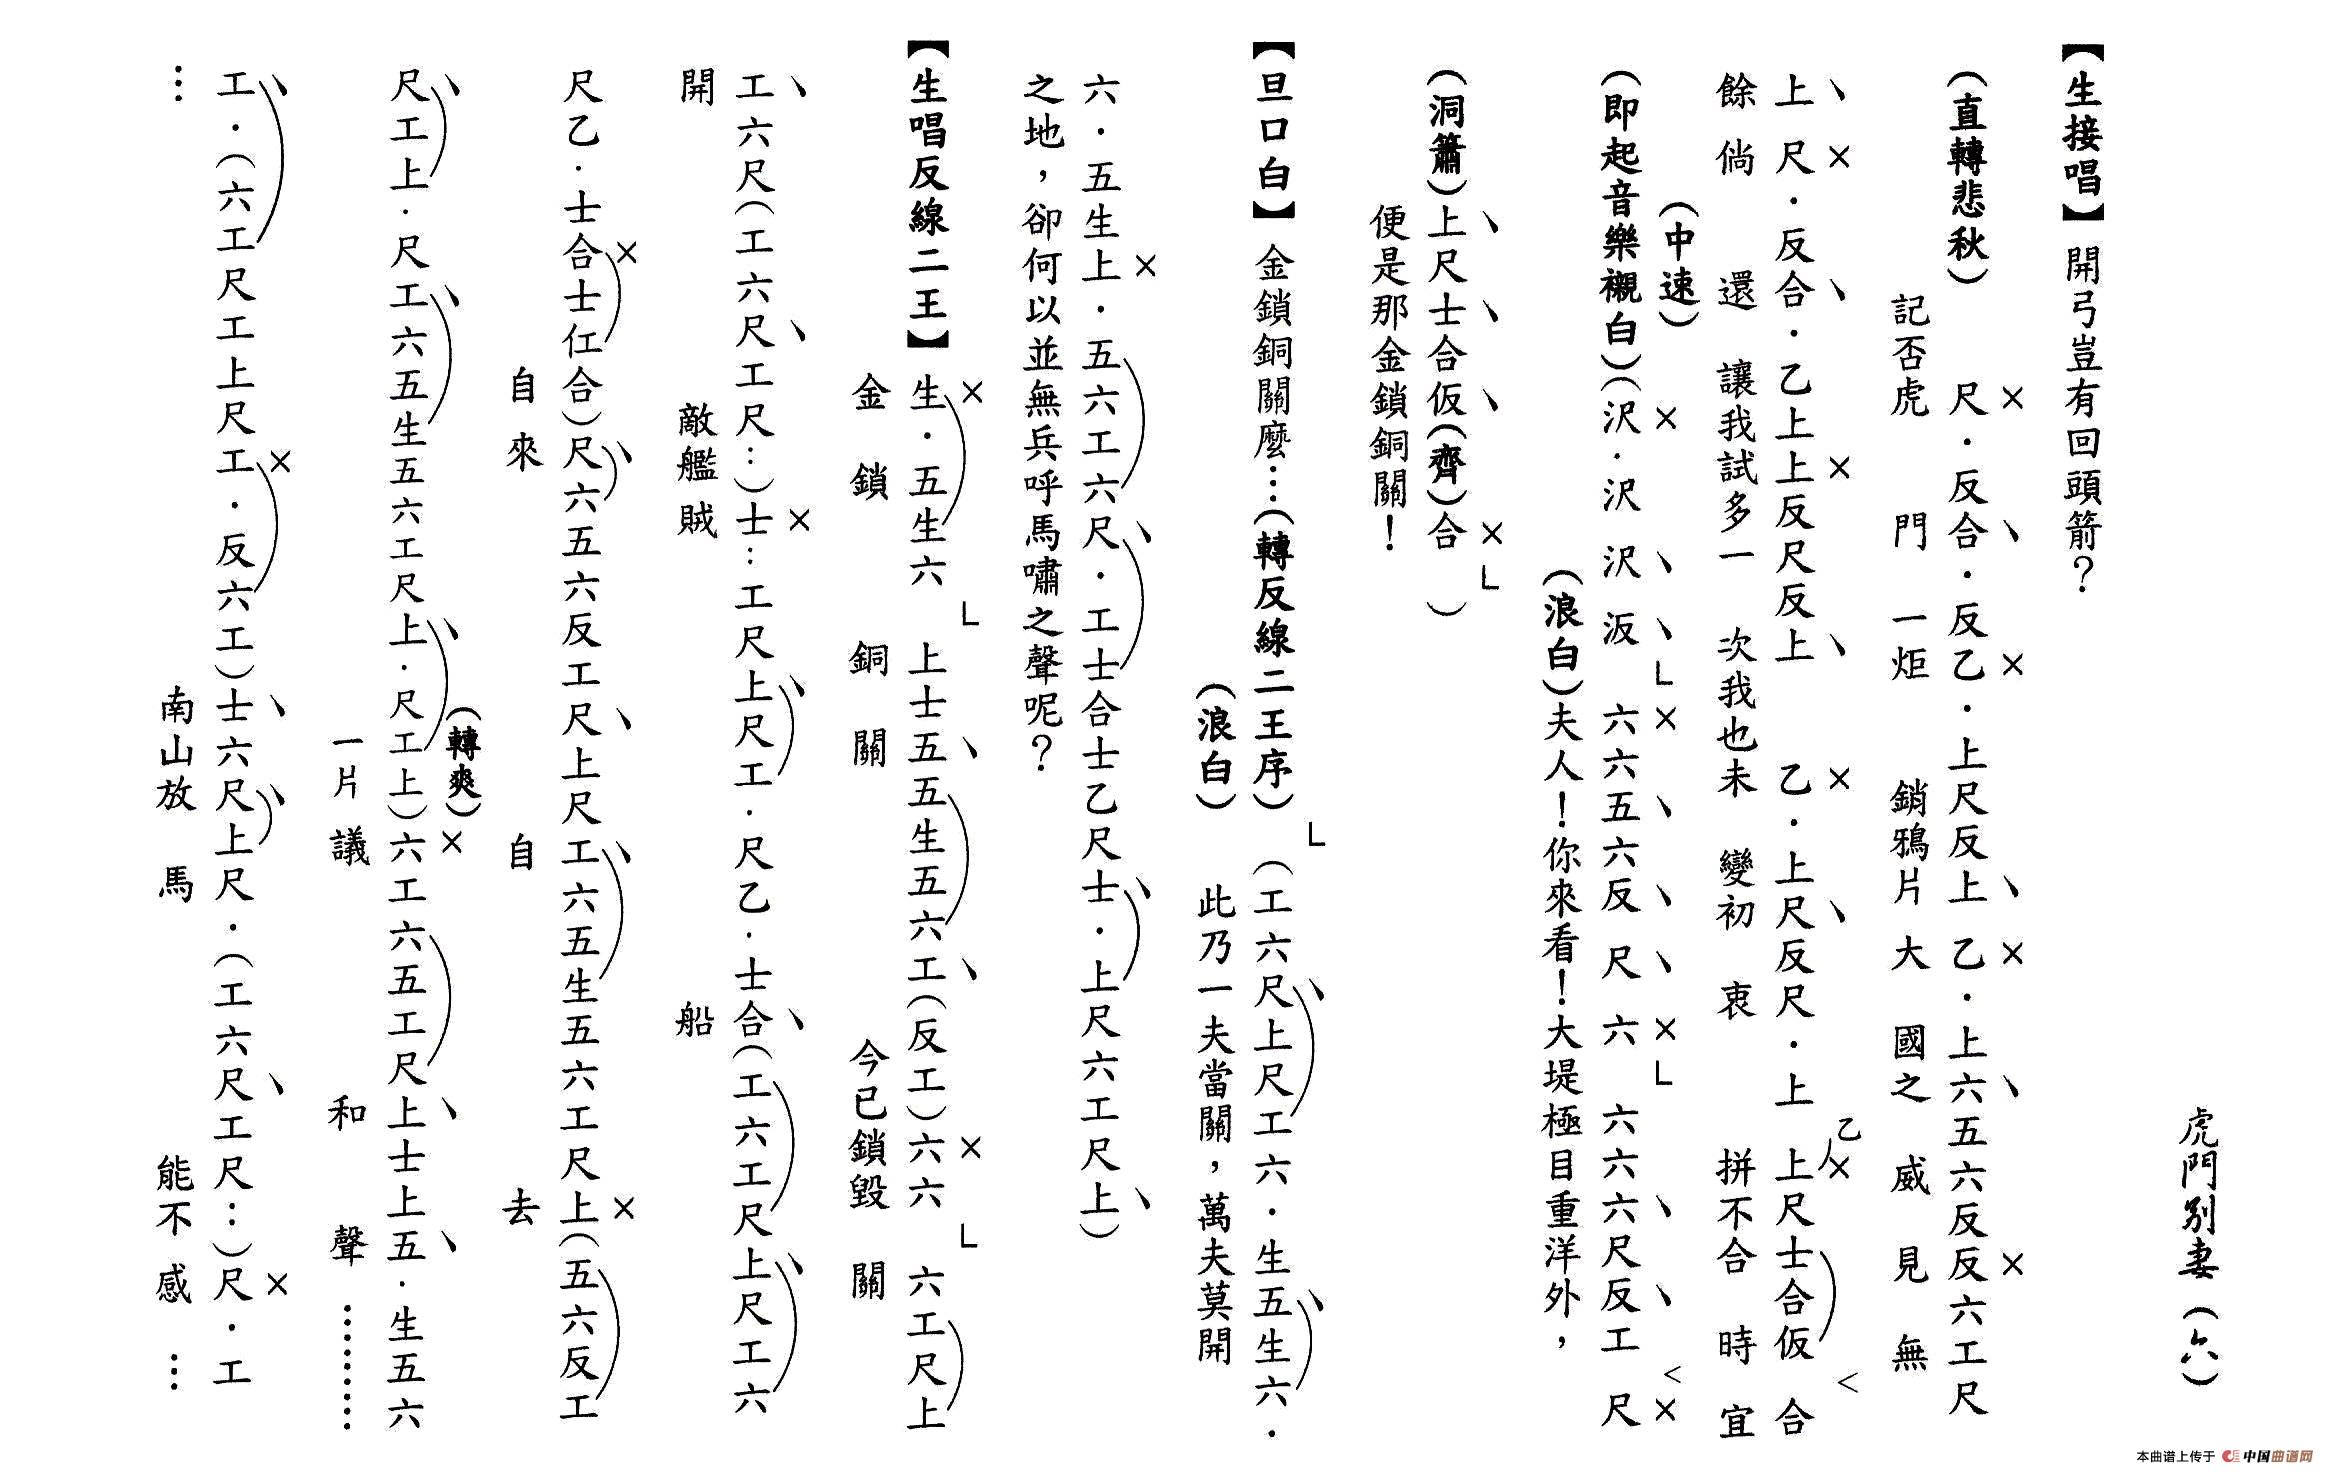 虎門別妻（六）
【生接唱】開弓豈有回頭箭？
（直轉悲秋）尺．反合．反乙．上尺反上乙．上六五六反反六工尺
記否虎門一炬銷鴉片大國之威見無
上尺．反合．乙上上反尺反上乙．上尺反尺．上乙上尺士合仮合
餘倘還讓我試多一次我也未變初衷拼不合時宜
（中速）
（即起音樂襯白）（沢．沢沢沥六六五六反尺六六六六尺反工尺
（浪白）夫人！你來看！大堤極目重洋外，
（洞簫）上尺士合仮（齊）合）
便是那金鎖銅關！
【旦口白】金鎖銅關麼…（轉反線二王序）（工六尺上尺工六．生五生六．
（浪白）此乃一夫當關，萬夫莫開
六．五生上．五六工六尺．工士合士乙尺士．上尺六工尺上）
之地，卻何以並無兵呼馬嘯之聲呢？
【生唱反線二王】生．五生六上士五五生五六工（反工）六六六工尺上
金鎖銅關今已鎖毀關
工六尺（工六尺工尺：）士：工尺上尺工．尺乙．士合（工六工尺上尺工六
開敵艦賊船
尺乙．士合士仜合）尺六五六反工尺上尺工六五生五六工尺上（五六反工
自來自去
尺工上．尺工六五生五六工尺上．尺工上）六工六五工尺上士上五．生五六
（轉爽）
一片議和聲………
工．（六工尺工上尺工．反六工）士六尺上尺．（工六尺工尺：）尺．工
…南山放馬能不感…
本曲谱上传于 中国曲谱网